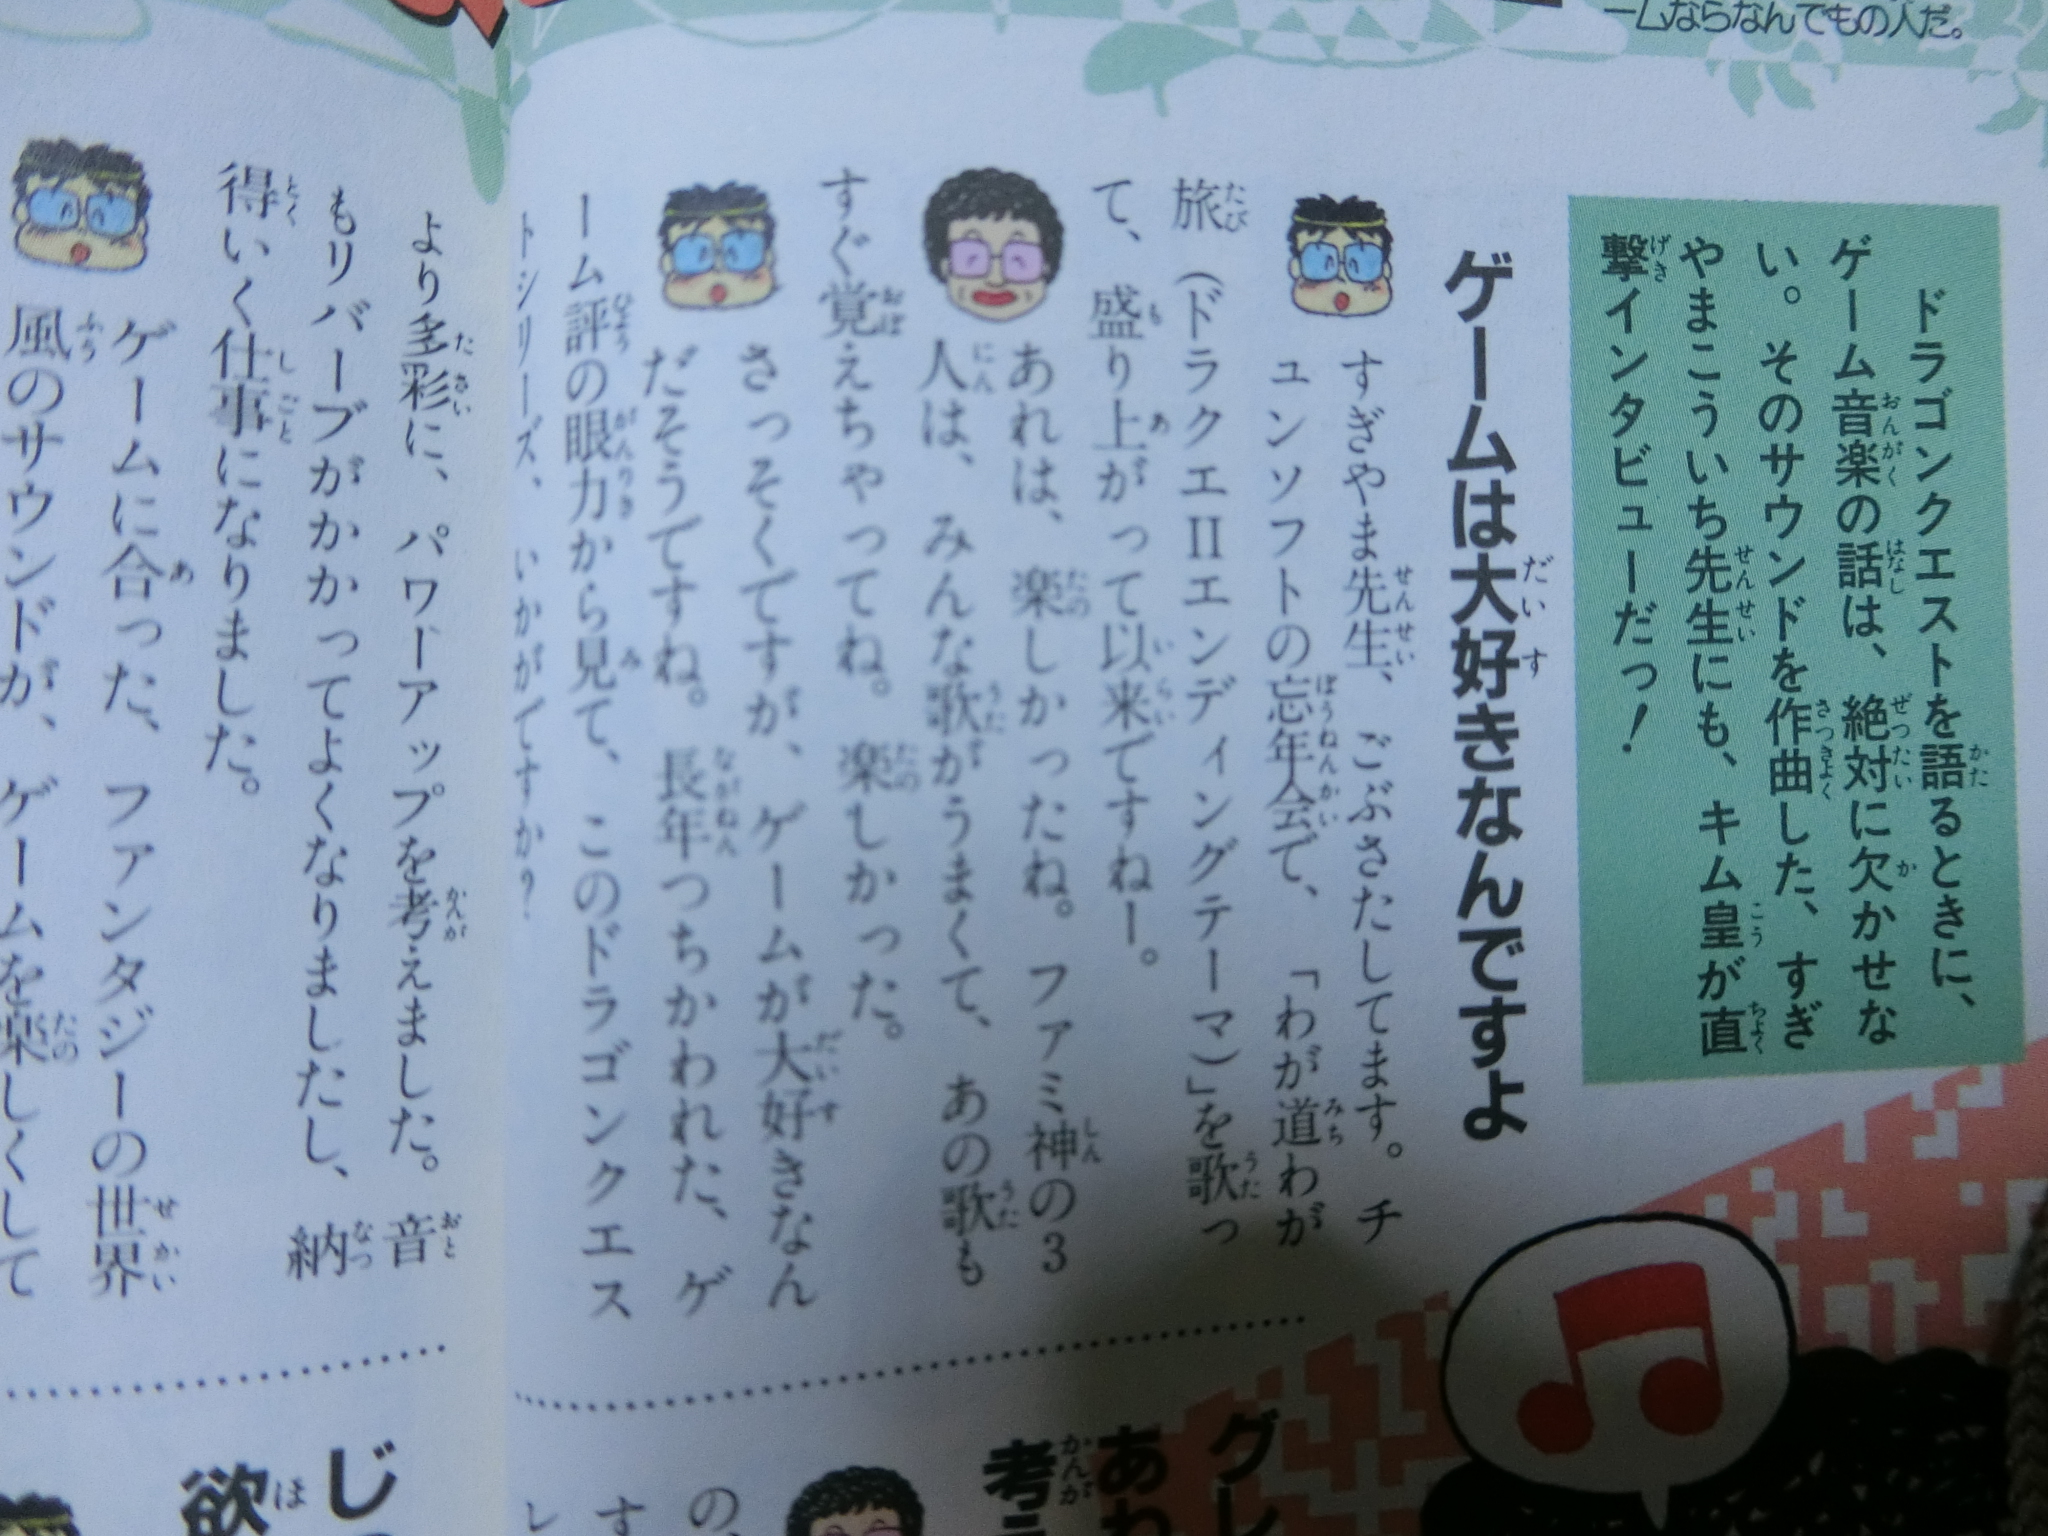 ームならなんでもの人だ。
ドラゴンクエストを語るときに、
ゲーム音楽の話は、絶対に欠かせな
い。そのサウンドを作曲した、すぎ
やまこういち先生にも、キム皇が直
撃インタビューだっ！
ゲームは大好きなんですよ
すぎやま先生、ごぶさたしてます。チ
ュンソフトの忘年会で、「わが道わが
旅（ドラクエIIエンディングテーマ）」を歌っ
て、盛り上がって以来ですねー。
あれは、楽しかったね。ファミ神の3
人は、みんな歌がうまくて、あの歌も
すぐ覚えちゃってね。楽しかった。
さっそくですが、ゲームが大好きなん
だそうですね。長年つちかわれた、ゲ
ーム評の眼力から見て、このドラゴンクエス
トシリーズ、いかがですか？
より多彩に、パワーアップを考えました。音
もリバーブがかかってよくなりましたし、納
得いく仕事になりました。
ゲームに合った、ファンタジーの世界
風のサウンドが、ゲームを楽しくして
グレ
あわ
考え
の
す
レ
じ
欲